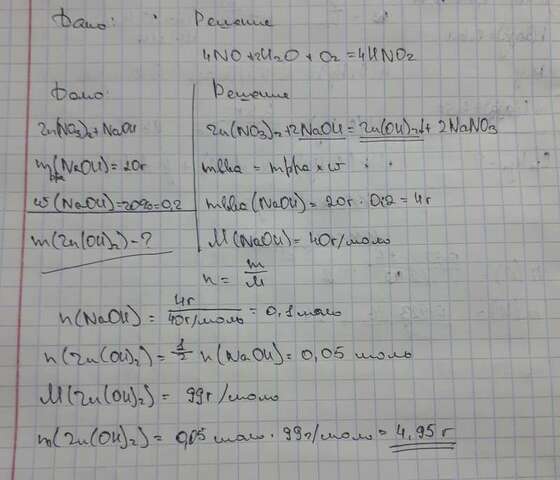 Дано: Решение
4NO + 2H₂O + O₂ = 4HNO₂
Дано: Решение
Zn(NO₃)₂ + NaOH
Zn(NO₃)₂ + 2NaOH = Zn(OH)₂↓ + 2NaNO₃
m рра (NaOH) = 20г
mвва = mрра × w
w(NaOH) = 20% = 0,2
mвва (NaOH) = 20г · 0,2 = 4г
m(Zn(OH)₂) - ?
M(NaOH) = 40г/моль
n = m/M
n(NaOH) = 4г / 40г/моль = 0,1 моль
n(Zn(OH)₂) = 1/2 n(NaOH) = 0,05 моль
M(Zn(OH)₂) = 99г/моль
m(Zn(OH)₂) = 0,05 моль · 99г/моль = 4,95 г